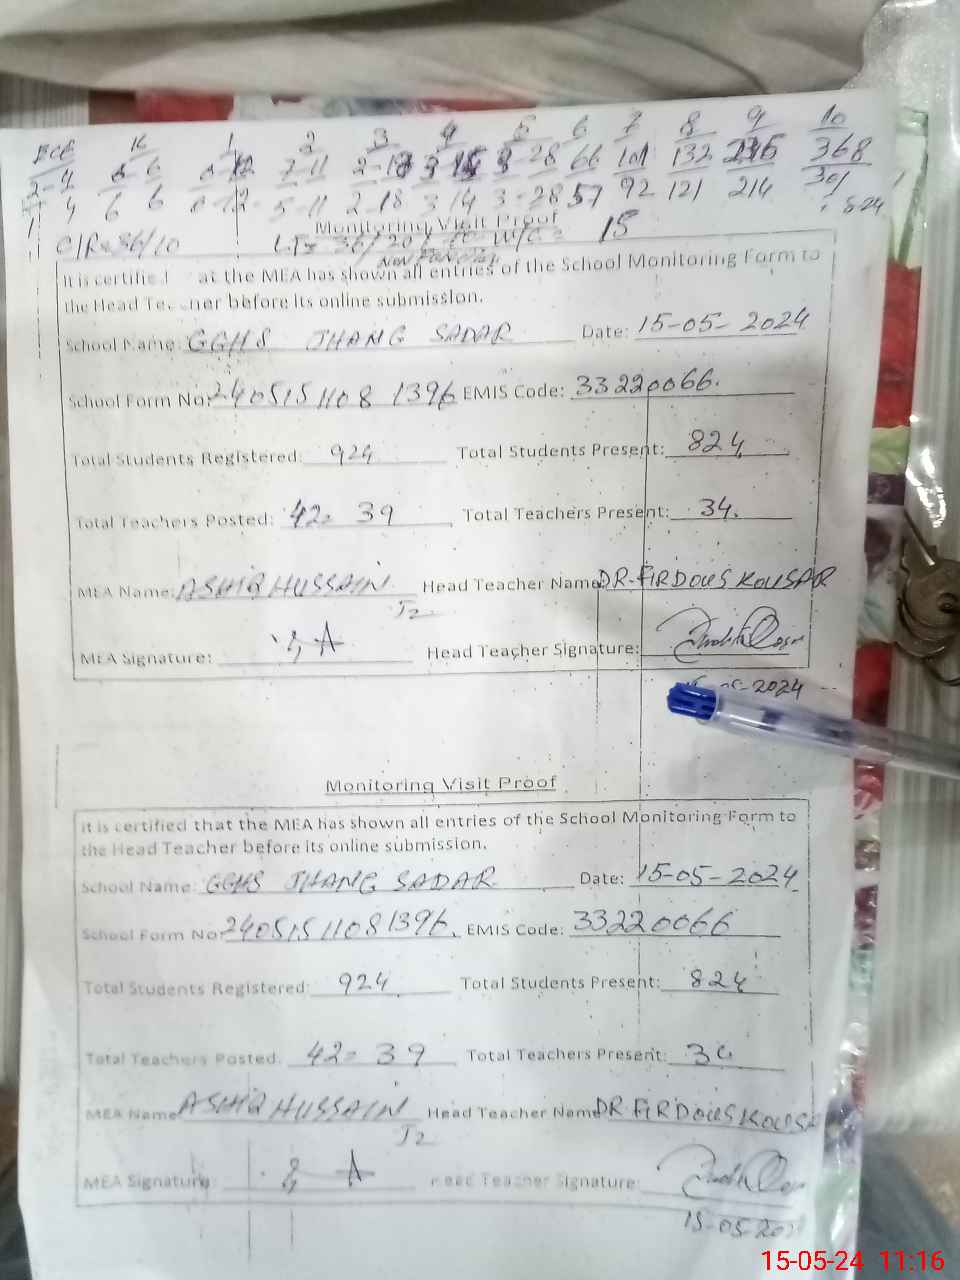 ECE K 1 2 3 4 5 6 7 8 9 10
2-4 7-11 28 66 101 132 368
4 6 6 5-11 2-18 3 14 3-28 57 92 121 214 301
Monitoring Visit Proof 15
C/R=36/10
It is certified at the MEA has shown all entries of the School Monitoring Form to
the Head Teacher before its online submission.
School Name: GGHS JHANG SADAR Date: 15-05-2024
School Form No: 2405151108 1396 EMIS Code: 33220066.
Total Students Registered: 924 Total Students Present: 824
Total Teachers Posted: 42= 39 Total Teachers Present: 34.
MEA Name: ASHIQ HUSSAIN Head Teacher Name: DR.FIRDOUS KOUSAR
J2
MEA Signature: Head Teacher Signature:
05-2024
Monitoring Visit Proof
It is certified that the MEA has shown all entries of the School Monitoring Form to
the Head Teacher before its online submission.
School Name: GGHS JHANG SADAR Date: 15-05-2024
School Form No: 2405151108 1396. EMIS Code: 33220066
Total Students Registered: 924 Total Students Present: 824
Total Teachers Posted: 42= 39 Total Teachers Present: 34
MEA Name: ASHIQ HUSSAIN Head Teacher Name: DR.FIRDOUS KOUSA
J2
MEA Signature: Head Teacher Signature:
15-05-202
15-05-24 11:16